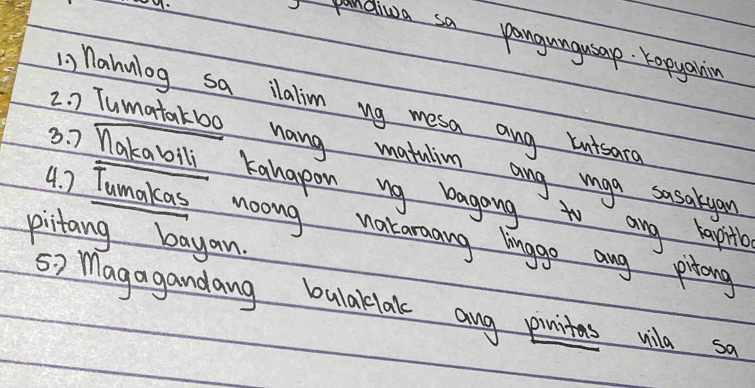 pandiwa sa pangungusap. Kopyahin
1.) Nahulog sa ilalim ng mesa ang kutsara
2.) Tumatakbo nang matulim ang mga sasakyan
3.) Nakabili kahapon ng bagong tv ang kapitb
4.) Tumakas noong nakaraang linggo ang pitong
piitang bayan.
5.) Magagandang bulaklak ang pinitas nila sa